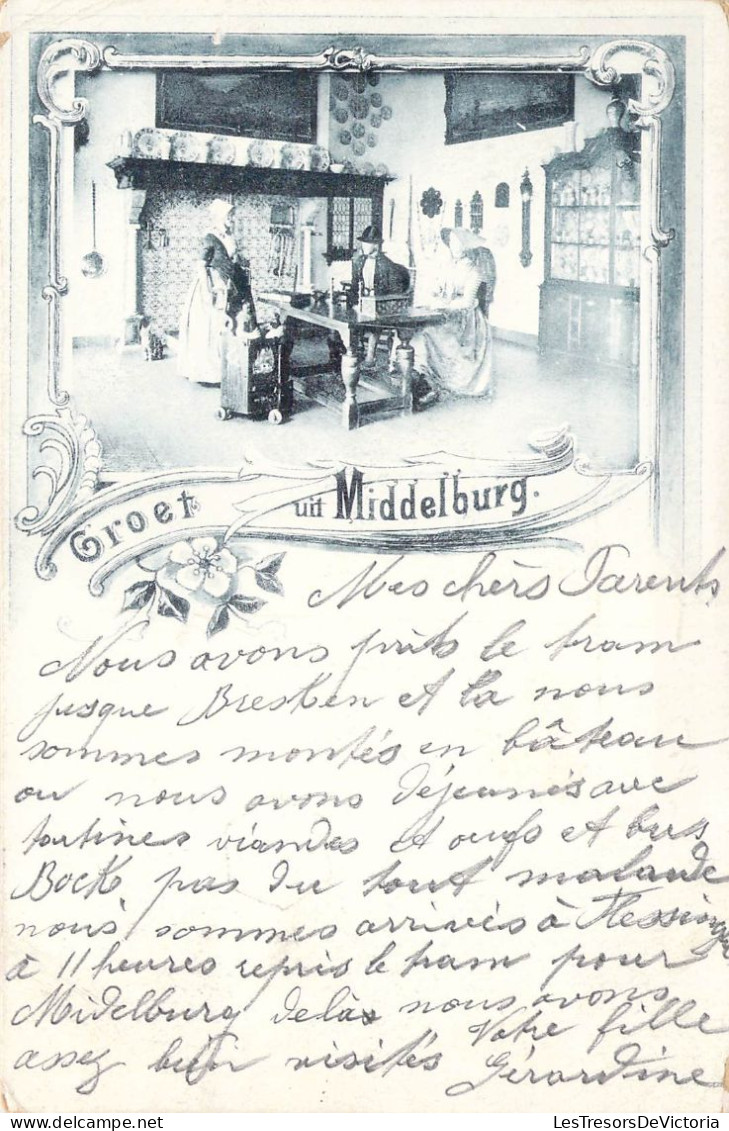 Groet uit Middelburg.
Mes chèrs Parents
Nous avons prits le tram
jusque Bresken et la nous
sommes montés en bâteau
ou nous avons déjeunés avec
tartines viandes et oeufs et bus
Bock, pas du tout malade
nous sommes arrivés à Flessingue
à 11 heures repris le tram pour
Midelburg delà nous avons
assez bien visités Votre fille
Gérardine
LesTresorsDeVictoria